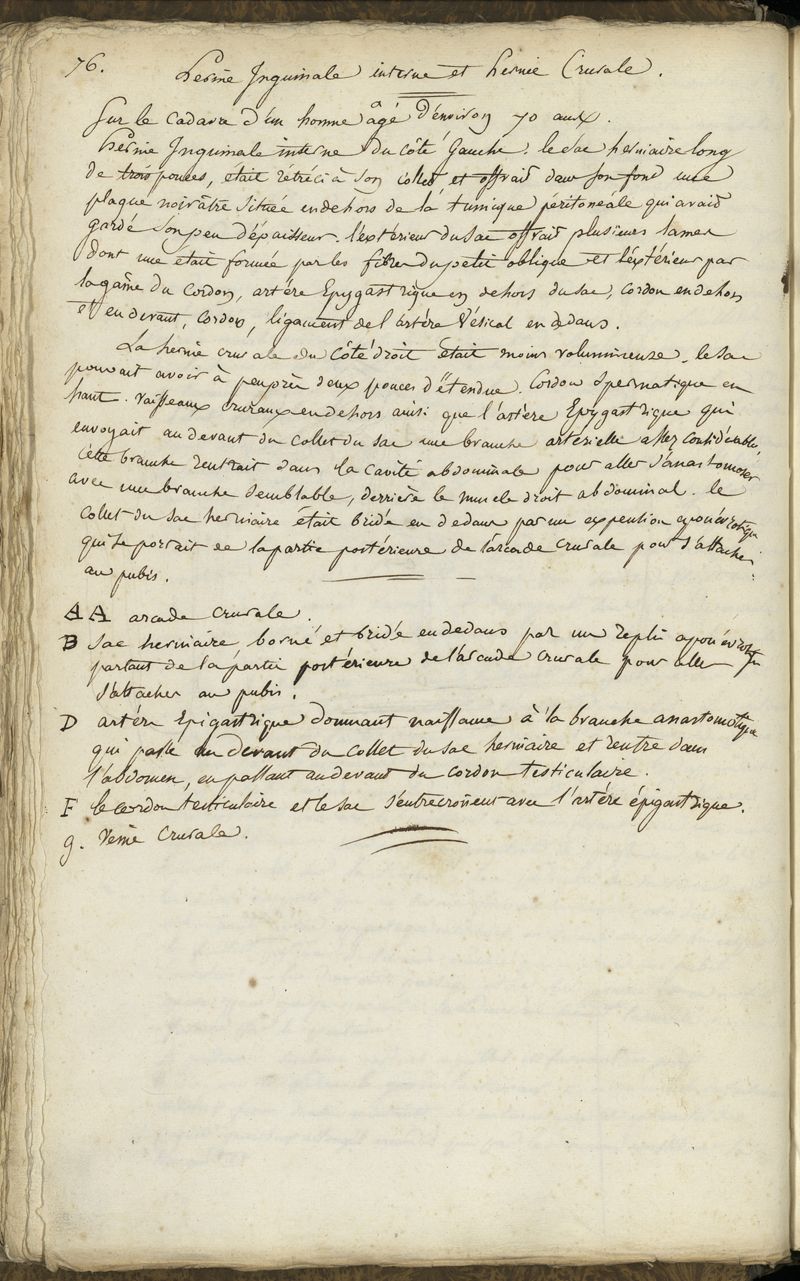 76.
hernie Inguinale interne et hernie Crurale.
Sur le cadavre d'un homme âgé d'environ 70 ans.
hernie Inguinale interne du côté Gauche. le sac herniaire long
de trois pouces, était rétréci à son collet et offrait dans son fond une
plaque noirâtre située endehors de la tunique péritonéale qui avait
gardé son peu d'épaisseur. l'extérieur du sac offrait plusieurs lames
dont une était formée par les fibres du petit oblique et l'extérieur par
la gaîne du Cordon, artére Epygastrique en dehors du sac, cordon en dehors
et en devant, Cordon, ligament de l'artére Vésical en dedans.
La hernie crurale du côté droit était moins volumineuse. le sac
pouvait avoir à peuprès deux pouces d'étendue. Cordon spermatique en
haut. vaisseaux cruraux en dehors ainsi que l'artère Epygastrique qui
envoyait audevant du collet du sac une branche artérielle assez considérable,
cette branche rentrait dans la cavité abdominale pour aller s'anastomoser
avec une branche semblable, derrière le muscle droit abdominal. le
collet du sac herniaire était bridé en dedans par une expention aponévrotique
qui se portait de la partie postérieure de l'arcade crurale pour s'attacher
au pubis.
AA arcade Crurale.
B sac herniaire, borné et bridé en dedans par un repli aponévrotique
partant de la partie postérieure de l'arcade crurale pour aller
s'attacher au pubis.
D artére Epigastrique donnant naissance à la branche anastomotique
qui passe au devant du collet du sac herniaire et rentre dans
l'abdomen, en passant audevant du cordon testiculaire.
F le cordon testiculaire et le sac s'entrecroisent avec l'artére épigastrique.
g. Veine Crurale.